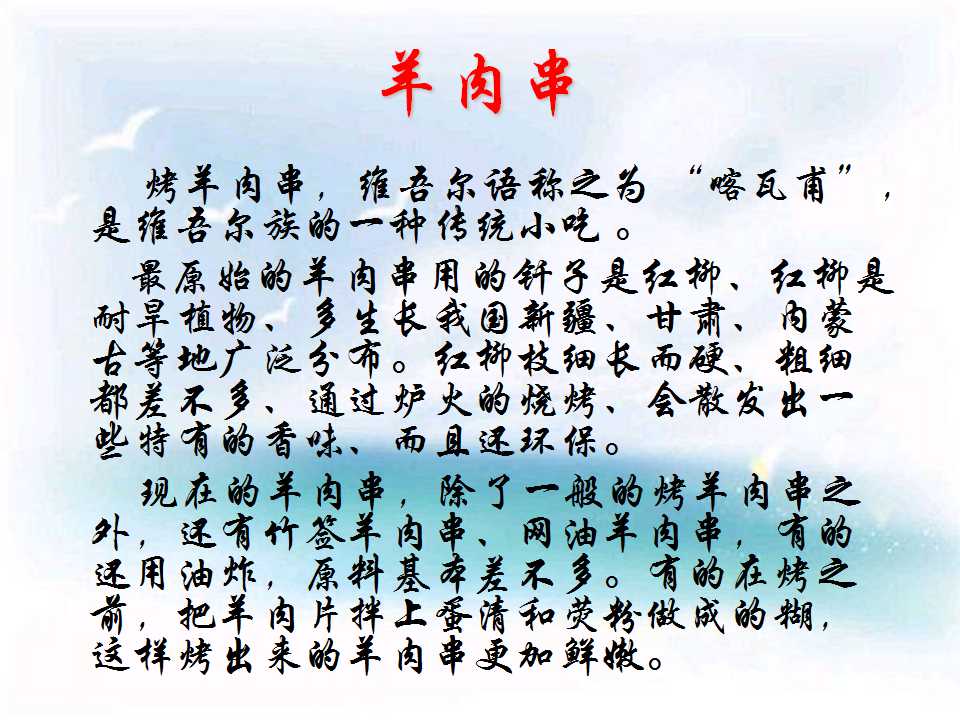 羊肉串
烤羊肉串，维吾尔语称之为 “喀瓦甫”，
是维吾尔族的一种传统小吃 。
最原始的羊肉串用的钎子是红柳、红柳是
耐旱植物、多生长我国新疆、甘肃、内蒙
古等地广泛分布。红柳枝细长而硬、粗细
都差不多、通过炉火的烧烤、会散发出一
些特有的香味、而且还环保。
现在的羊肉串，除了一般的烤羊肉串之
外，还有竹签羊肉串、网油羊肉串，有的
还用油炸，原料基本差不多。有的在烤之
前，把羊肉片拌上蛋清和荧粉做成的糊，
这样烤出来的羊肉串更加鲜嫩。